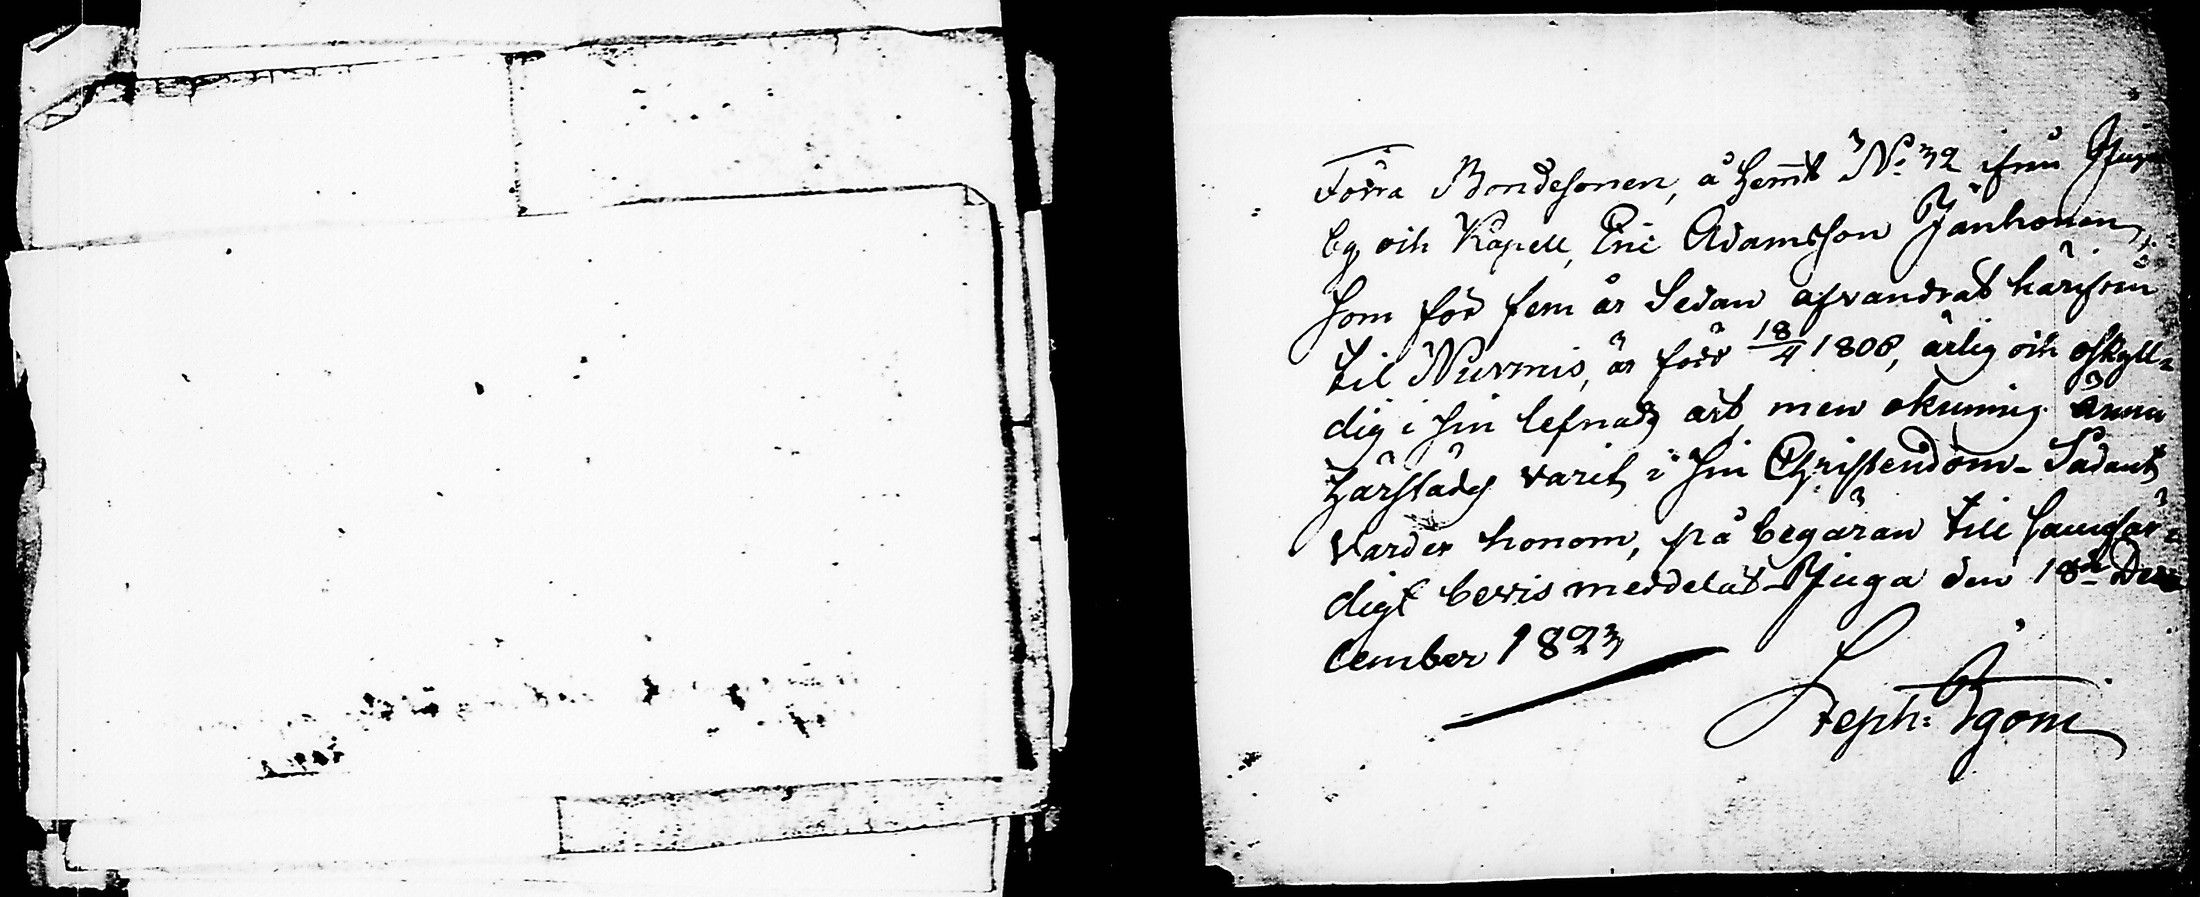 Förra Bondesonen, å Hemt No 32 ifrån Juga
by och Kapell, Eric Adamsson Jänhonen,
som för fem år sedan afvandrat härifrån
til Nurmis, är född 18/4 1808, ärlig och oskyll-
dig i sin lefnads art, men okunnig ännu
härstädes varit i sin Christendom. Sådant
varder honom, på begäran till sanfär-
digt bevis meddelat. Juga den 18de De-
cember 1823
Steph: